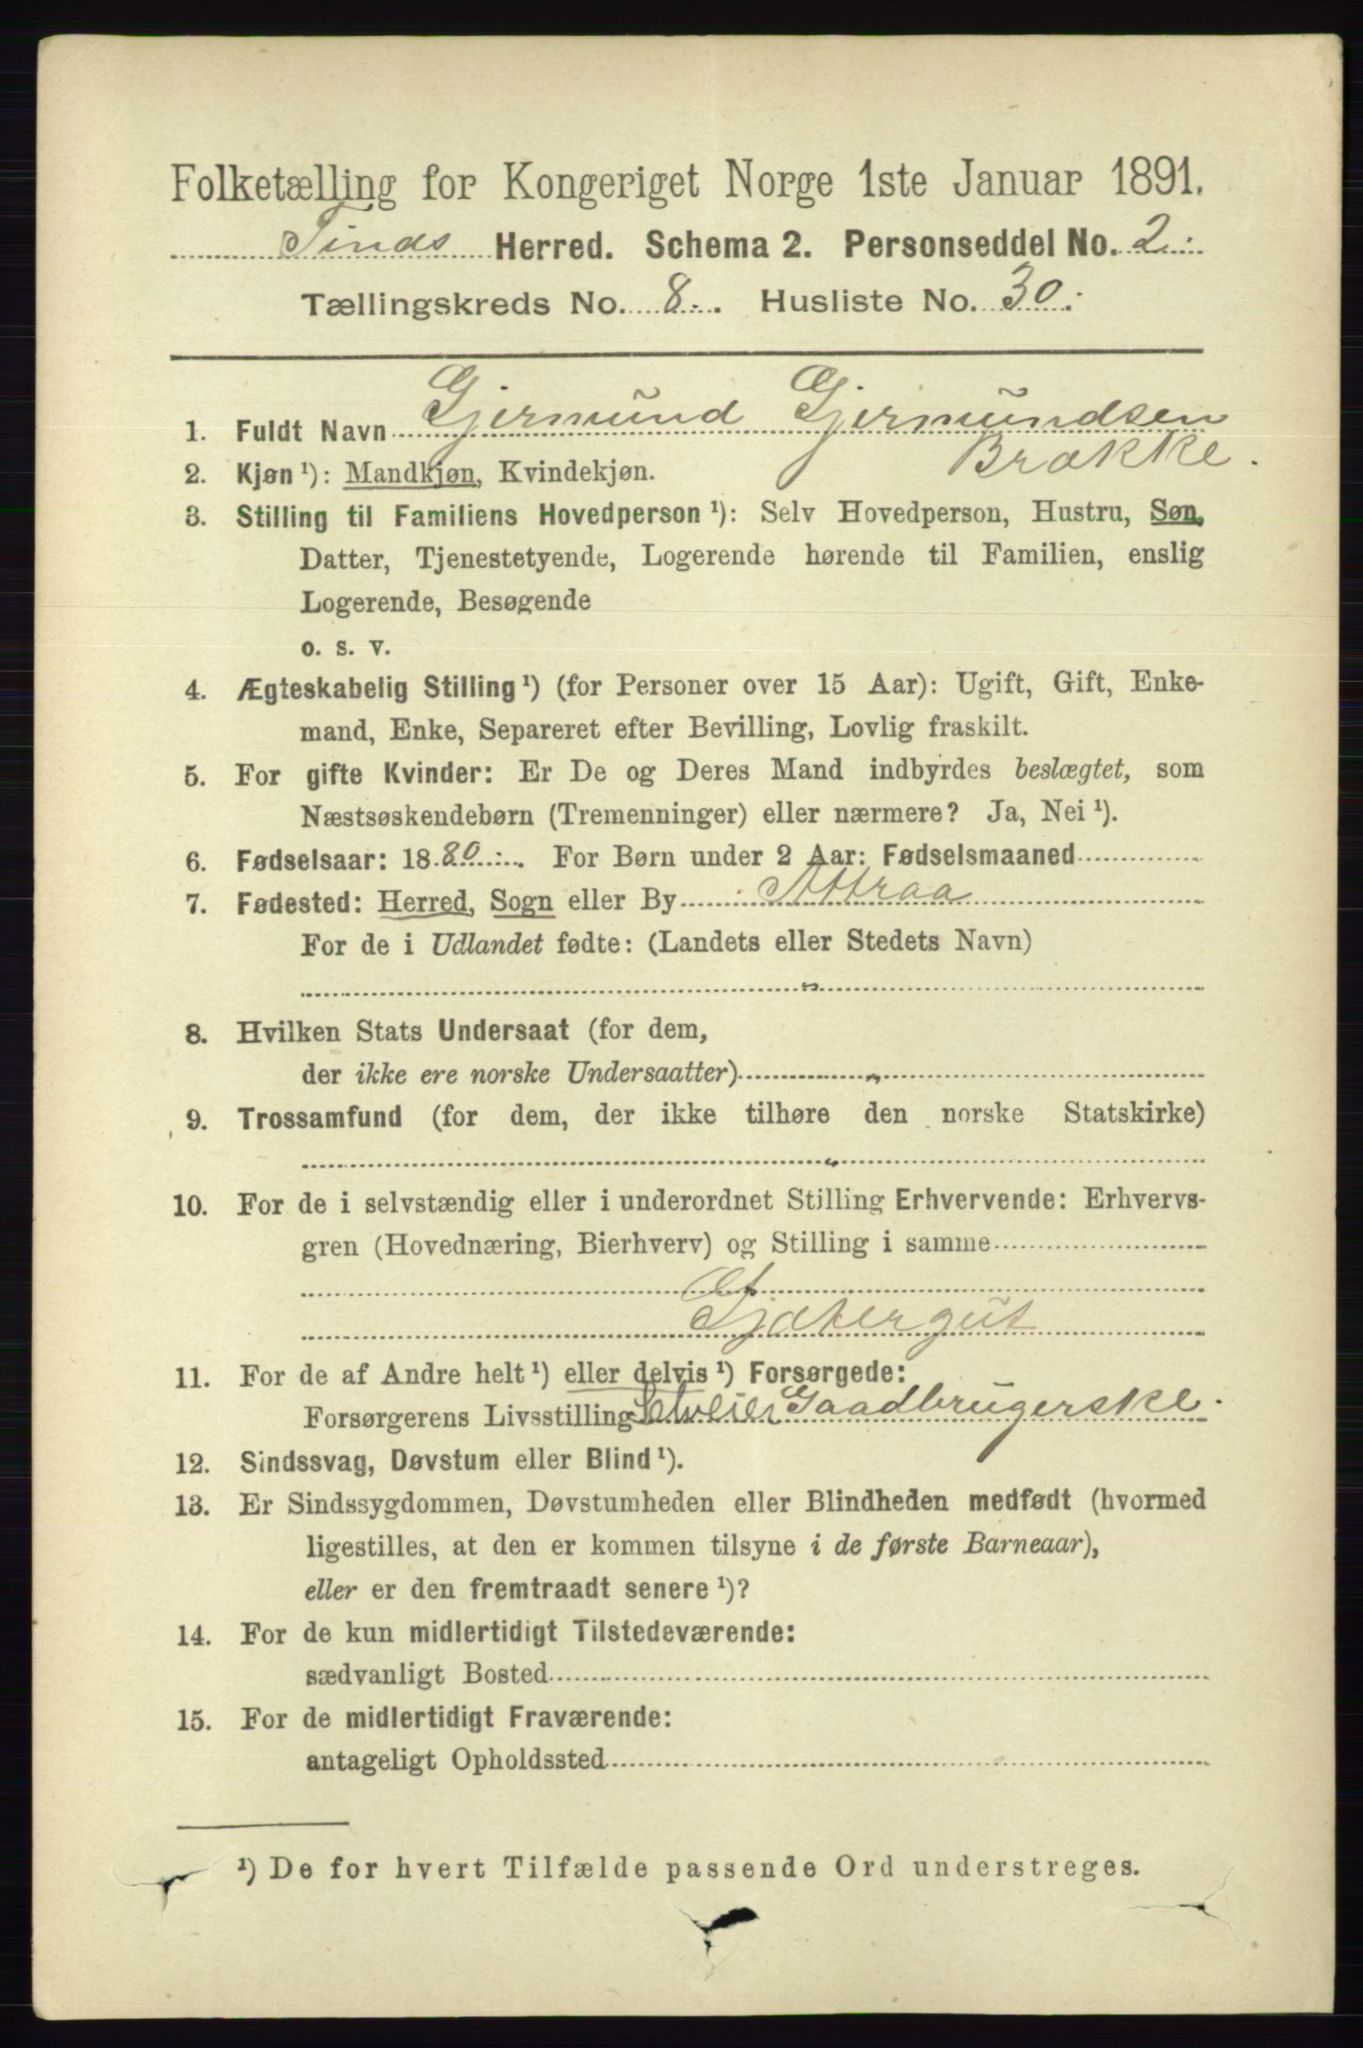 Folketælling for Kongeriget Norge 1ste Januar 1891.
Tinds Herred. Schema 2. Personseddel No. 2.
Tællingskreds No. 8. Husliste No. 30.
1. Fuldt Navn Gjermund Gjermundsen
Brække.
2. Kjøn ¹): Mandkjøn, Kvindekjøn.
3. Stilling til Familiens Hovedperson ¹): Selv Hovedperson, Hustru, Søn,
Datter, Tjenestetyende, Logerende hørende til Familien, enslig
Logerende, Besøgende
o. s. v.
4. Ægteskabelig Stilling ¹) (for Personer over 15 Aar): Ugift, Gift, Enke-
mand, Enke, Separeret efter Bevilling, Lovlig fraskilt.
5. For gifte Kvinder: Er De og Deres Mand indbyrdes beslægtet, som
Næstsøskendebørn (Tremenninger) eller nærmere? Ja, Nei ¹).
6. Fødselsaar: 1880. For Børn under 2 Aar: Fødselsmaaned
7. Fødested: Herred, Sogn eller By Attraa
For de i Udlandet fødte: (Landets eller Stedets Navn)
8. Hvilken Stats Undersaat (for dem,
der ikke ere norske Undersaatter)
9. Trossamfund (for dem, der ikke tilhøre den norske Statskirke)
10. For de i selvstændig eller i underordnet Stilling Erhvervende: Erhvervs-
gren (Hovednæring, Bierhverv) og Stilling i samme
Gjætergut
11. For de af Andre helt ¹) eller delvis ¹) Forsørgede:
Forsørgerens Livsstilling Selveier Gaadbrugerske.
12. Sindssvag, Døvstum eller Blind ¹).
13. Er Sindssygdommen, Døvstumheden eller Blindheden medfødt (hvormed
ligestilles, at den er kommen tilsyne i de første Barneaar),
eller er den fremtraadt senere ¹)?
14. For de kun midlertidigt Tilstedeværende:
sædvanligt Bosted
15. For de midlertidigt Fraværende:
antageligt Opholdssted
¹) De for hvert Tilfælde passende Ord understreges.